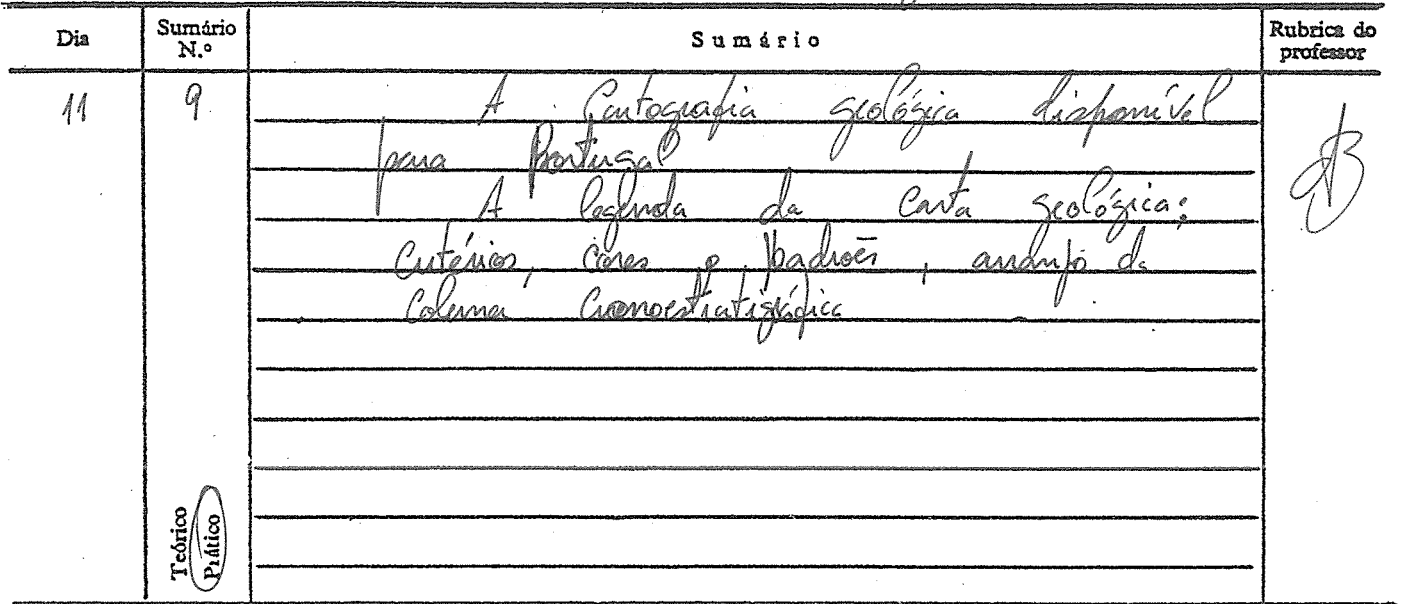 Dia Sumário N.º Sumário Rubrica do professor
11 9 A Cartografia geológica disponível
para Portugal
A legenda da Carta geológica:
Critérios, cores e padrões, arranjo da
Coluna Cronoestratigráfica
Teórico
Prático